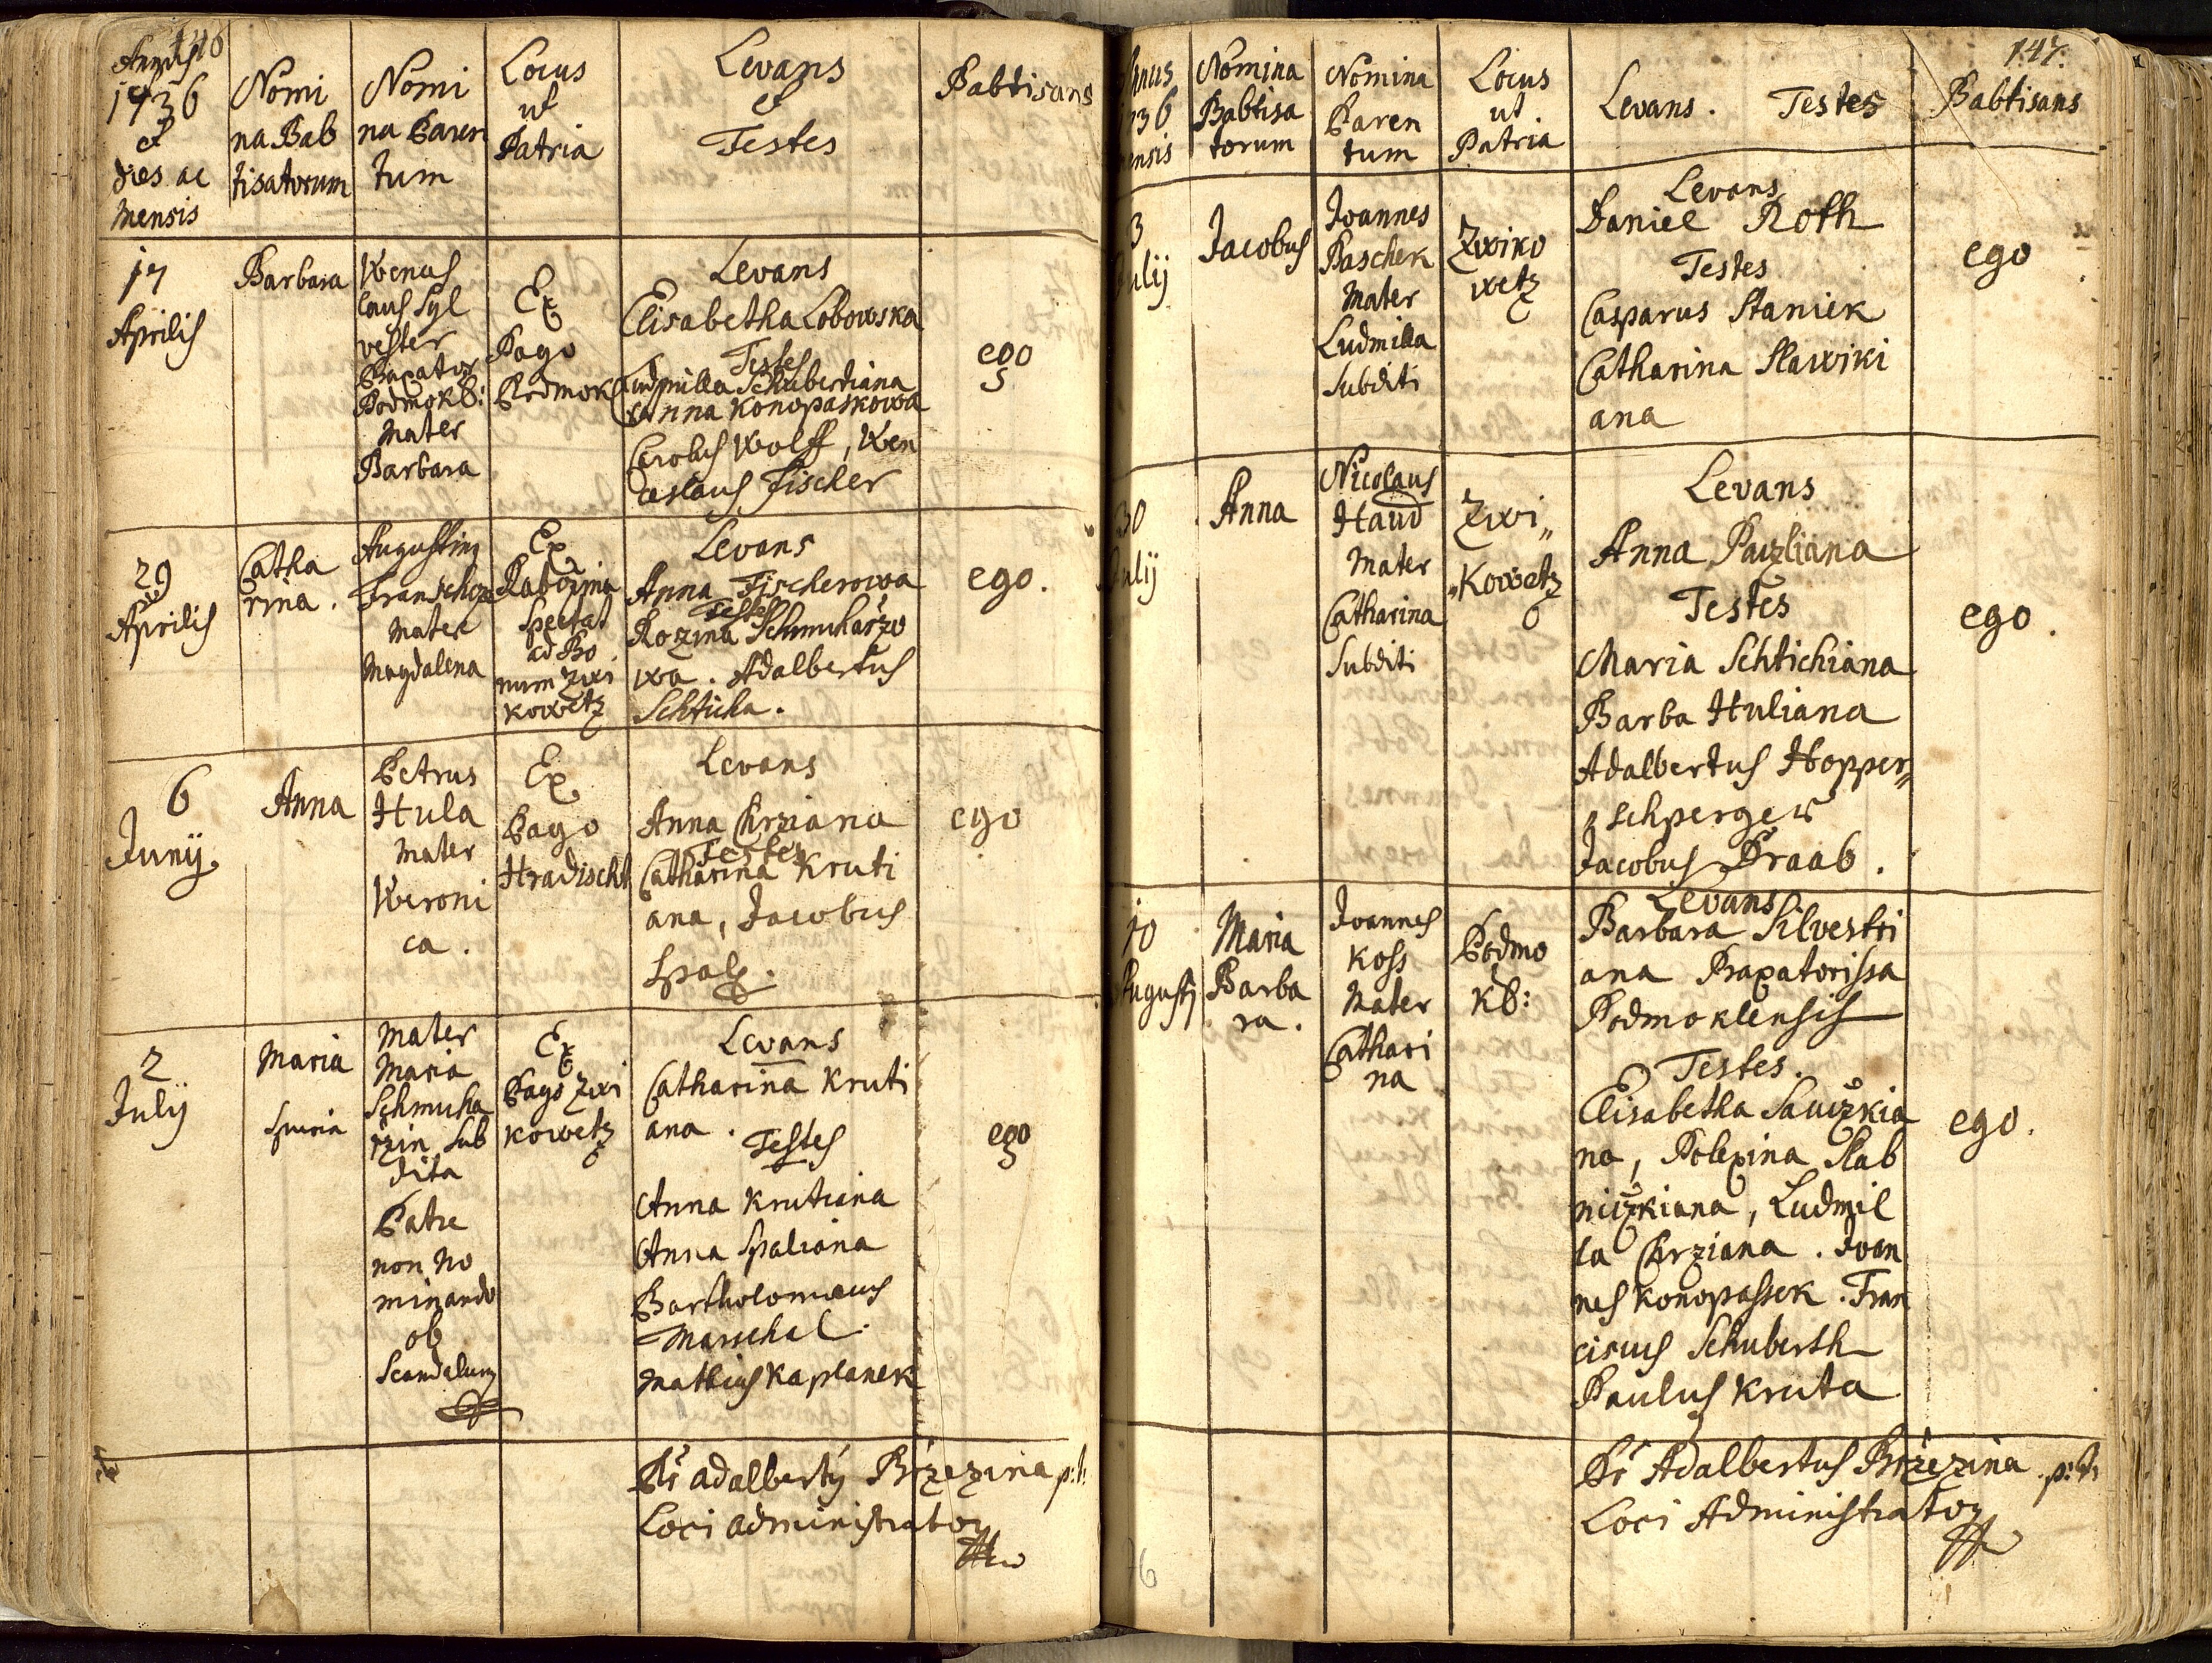 146
Annus
1736
et
dies ac
mensis
Nomi
na Bab
tisatorum
Nomi
na Paren
tum
Locus
ut
Patria
Levans
et
Testes
Babtisans
17
Aprilis
Barbara
Wences
laus Syl
vester
Braxator
Podmokl:
Mater
Barbara
Ex
Pago
Podmokl
Levans
Elisabetha Lobowska
Testes
Ludmilla Schubertiana
Anna Konopaskowa
Carolus Wolff, Wen
ceslaus Fischer
ego
29
Aprilis
Catha
rina.
Augustin
Mater
Magdalena
Ex
spectat
ad Bo
num Zwi
kowetz
Levans
Anna Fischerowa
Testes
Rozina Schmukarzo
wa. Adalbertus
Schticha.
ego.
6
Junij
Anna
Petrus
Hula
Mater
Weroni
ca.
Ex
Pago
Hradischt
Levans
Anna Chrziana
Testes
Catharina Kruti
ana, Jacobus
Spal.
ego
2
Julij
Maria
spuria
Mater
Maria
Schmuka
rzin sub
dita
Patre
non no
minando
ob
Scandalum
Ex
Pago Zwi
kowetz
Levans
Catharina Kruti
ana.
Testes
Anna Krutiana
Anna Spaliana
Bartholomæus
Marschal.
Mathius Kaplanek
ego
Pr Adalbertg Brzezina p.t.
Loci administrator
147.
nnus
736
ensis
Nomina
Babtisa
torum
Nomina
Paren
tum
Locus
ut
Patria
Levans. Testes
Babtisans
3
Julij
Jacobus
Joannes
Paschek
Mater
Ludmilla
Subditi
Zwiko
wetz
Levans
Daniel Roth
Testes
Casparus Staniek
Catharina Slawiki
ana
ego
30
Julij
Anna
Nicolaus
Haud
Mater
Catharina
Subditi
Zwi„
„Kowetz
Levans
Anna Pauzliana
Testes
Maria Schtichiana
Barba Huliana
Adalbertus Hopper„
zschperger
Jacobus Braab.
ego.
10
Augusti
Maria
Barba
ra.
Joannes
Koss
Mater
Cathari
na
Podmo
kl:
Levans
Barbara Silvestri
ana Braxatorissa
Podmoklensis
Testes.
Elisabetha Sauczkia
na, Polexina Slab
niczkiana, Ludmil
la Chrziana. Joan
nes Konopassek. Fran
ciscus Schuberth
Paulus Kruta
ego.
Pr Adalbertus Brzezina p:t:
Loci Administrator
76